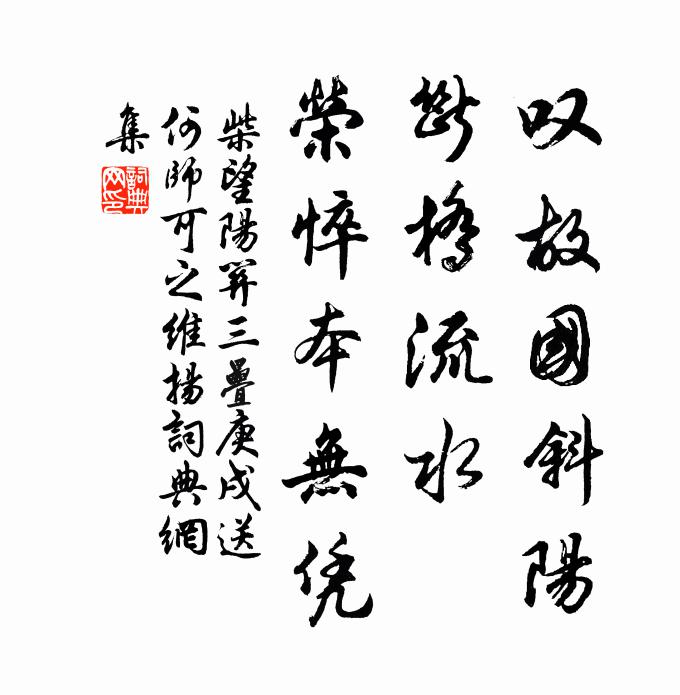 叹故國斜陽
斷橋流水
榮悴本無凭
柴望陽関三疊庚戌送
何師可之維揚詞典網
集
詞典
网印